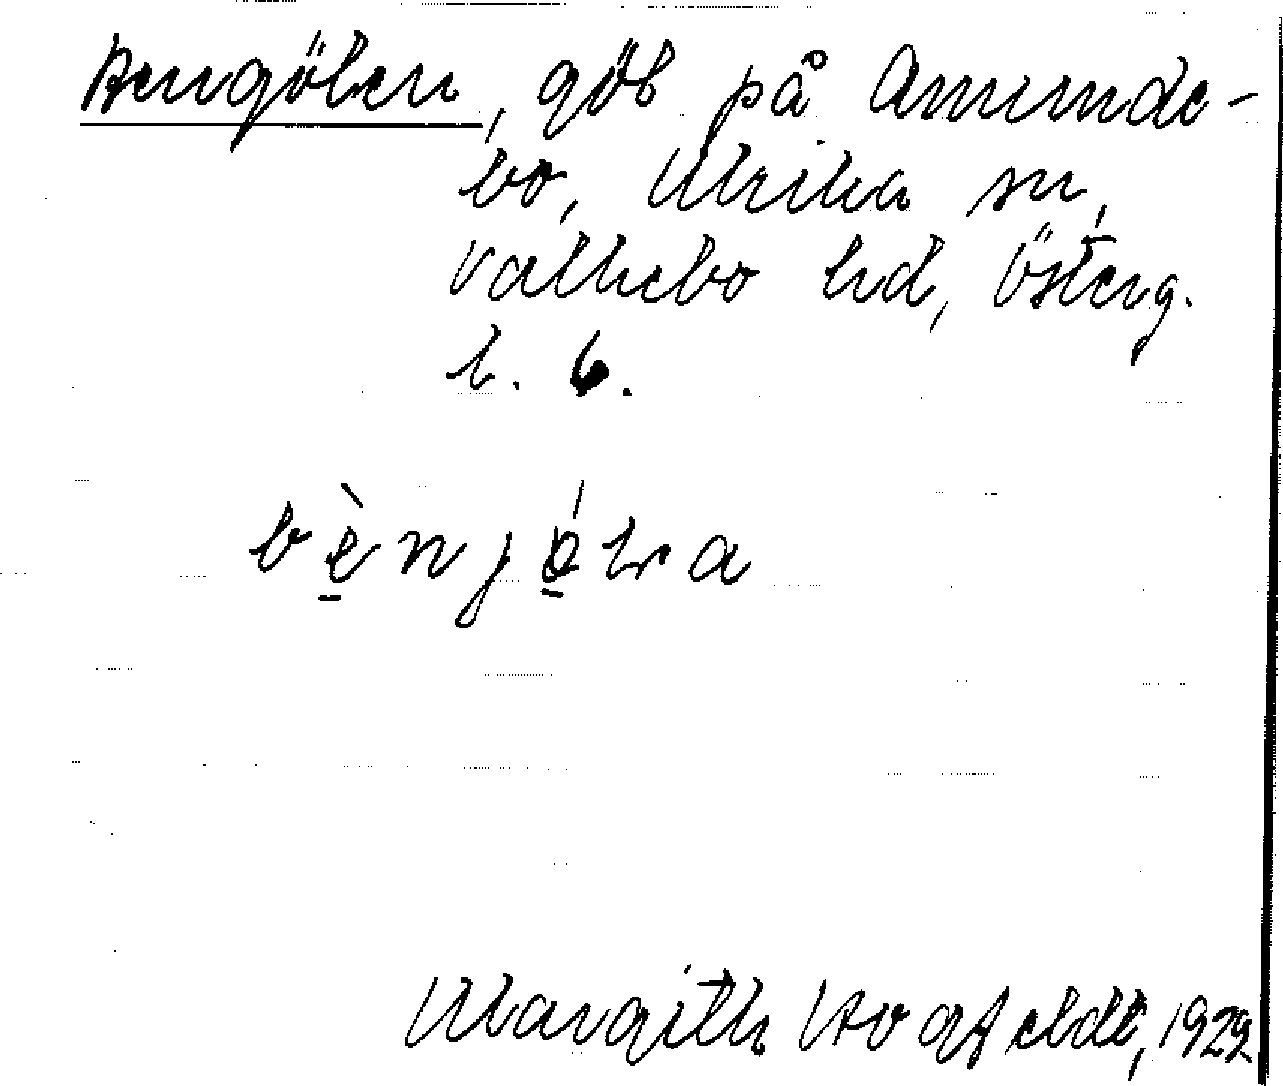 Bengölen, göl på Amunde-
bo, Ulrika sn,
Valkebo hd, Österg.
l. 6.
bènjǿla
Margith Hogfeldt, 1929